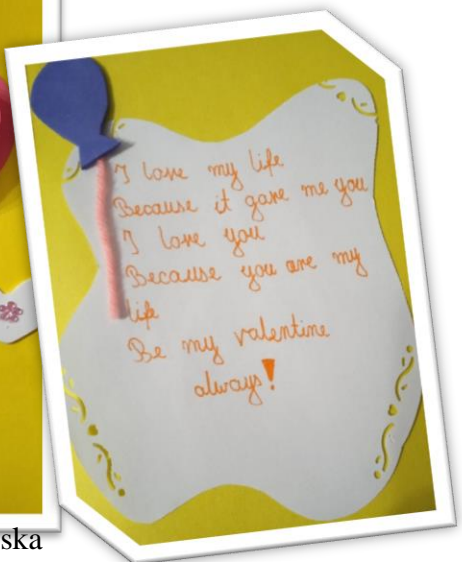 I love my life
Because it gave me you
I love you
Because you are my
life
Be my valentine
always!
ska